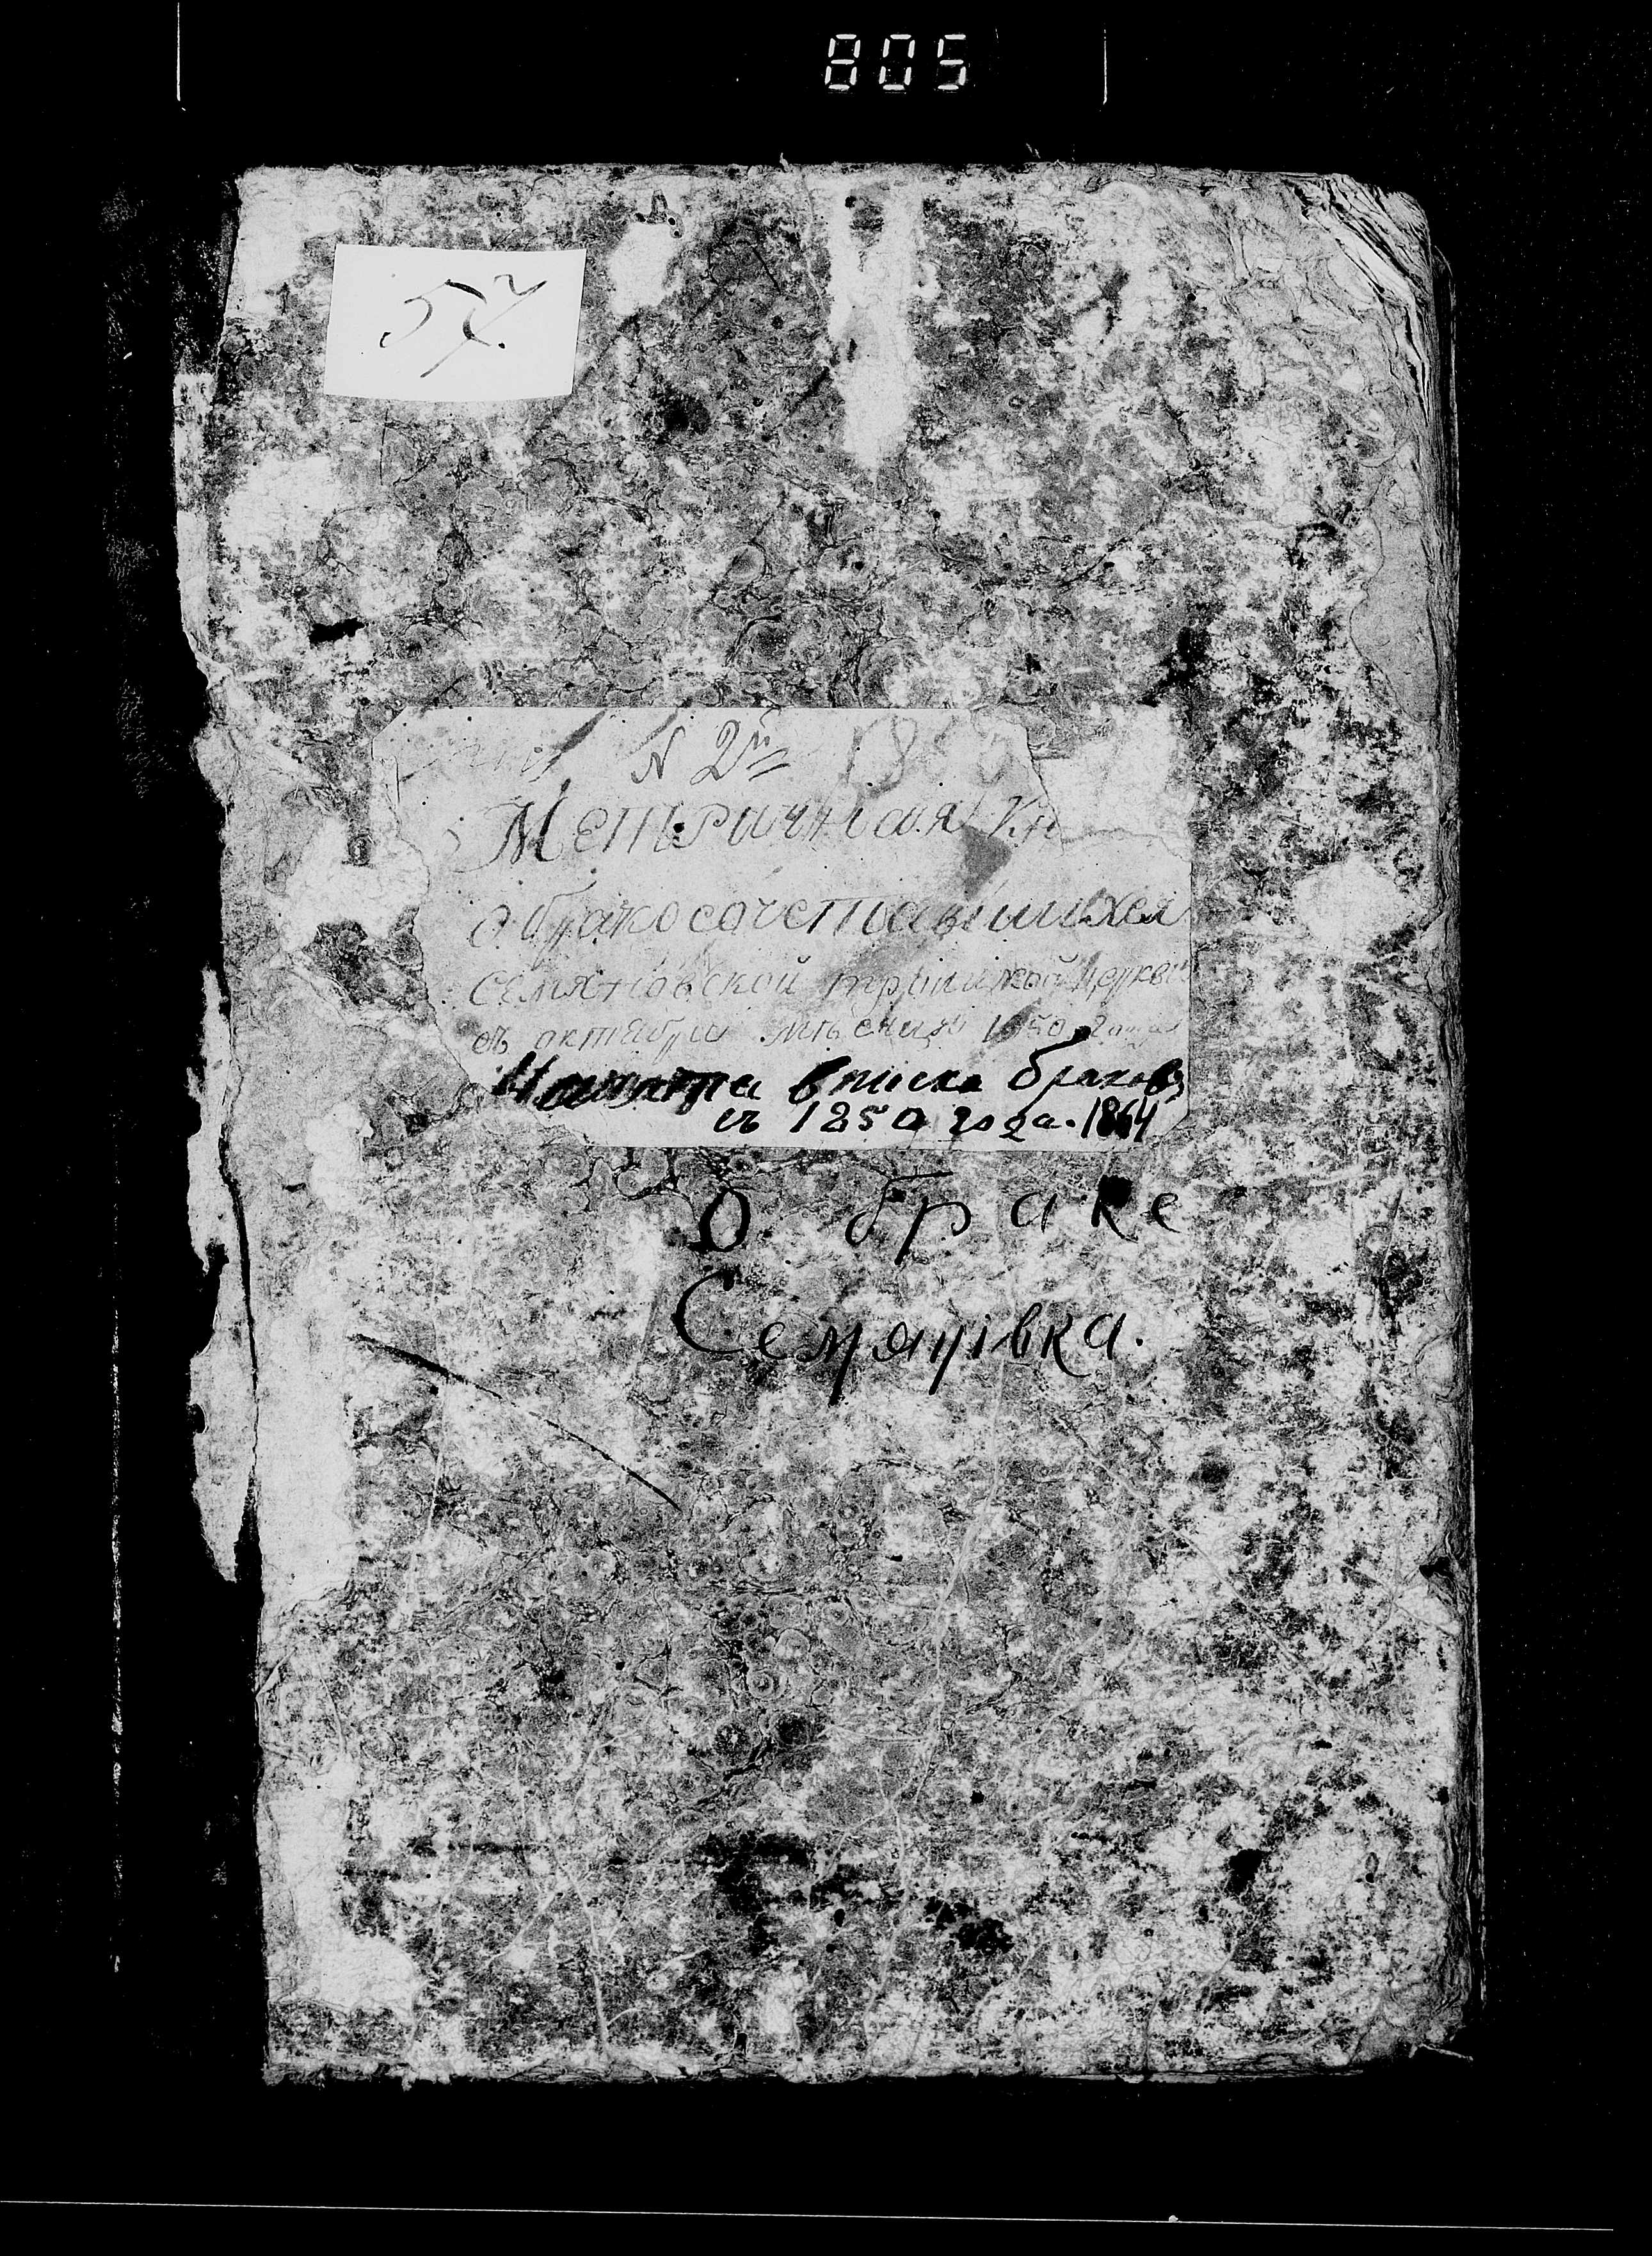 805
57.
N 2й
Метричная Кн
о бракосочетавшихся
Семяновской троицкой церкви
съ октября мѣсяца 1850 года
Начата вписка браковъ
съ 1850 года. 1864
О браке
Семянівка.